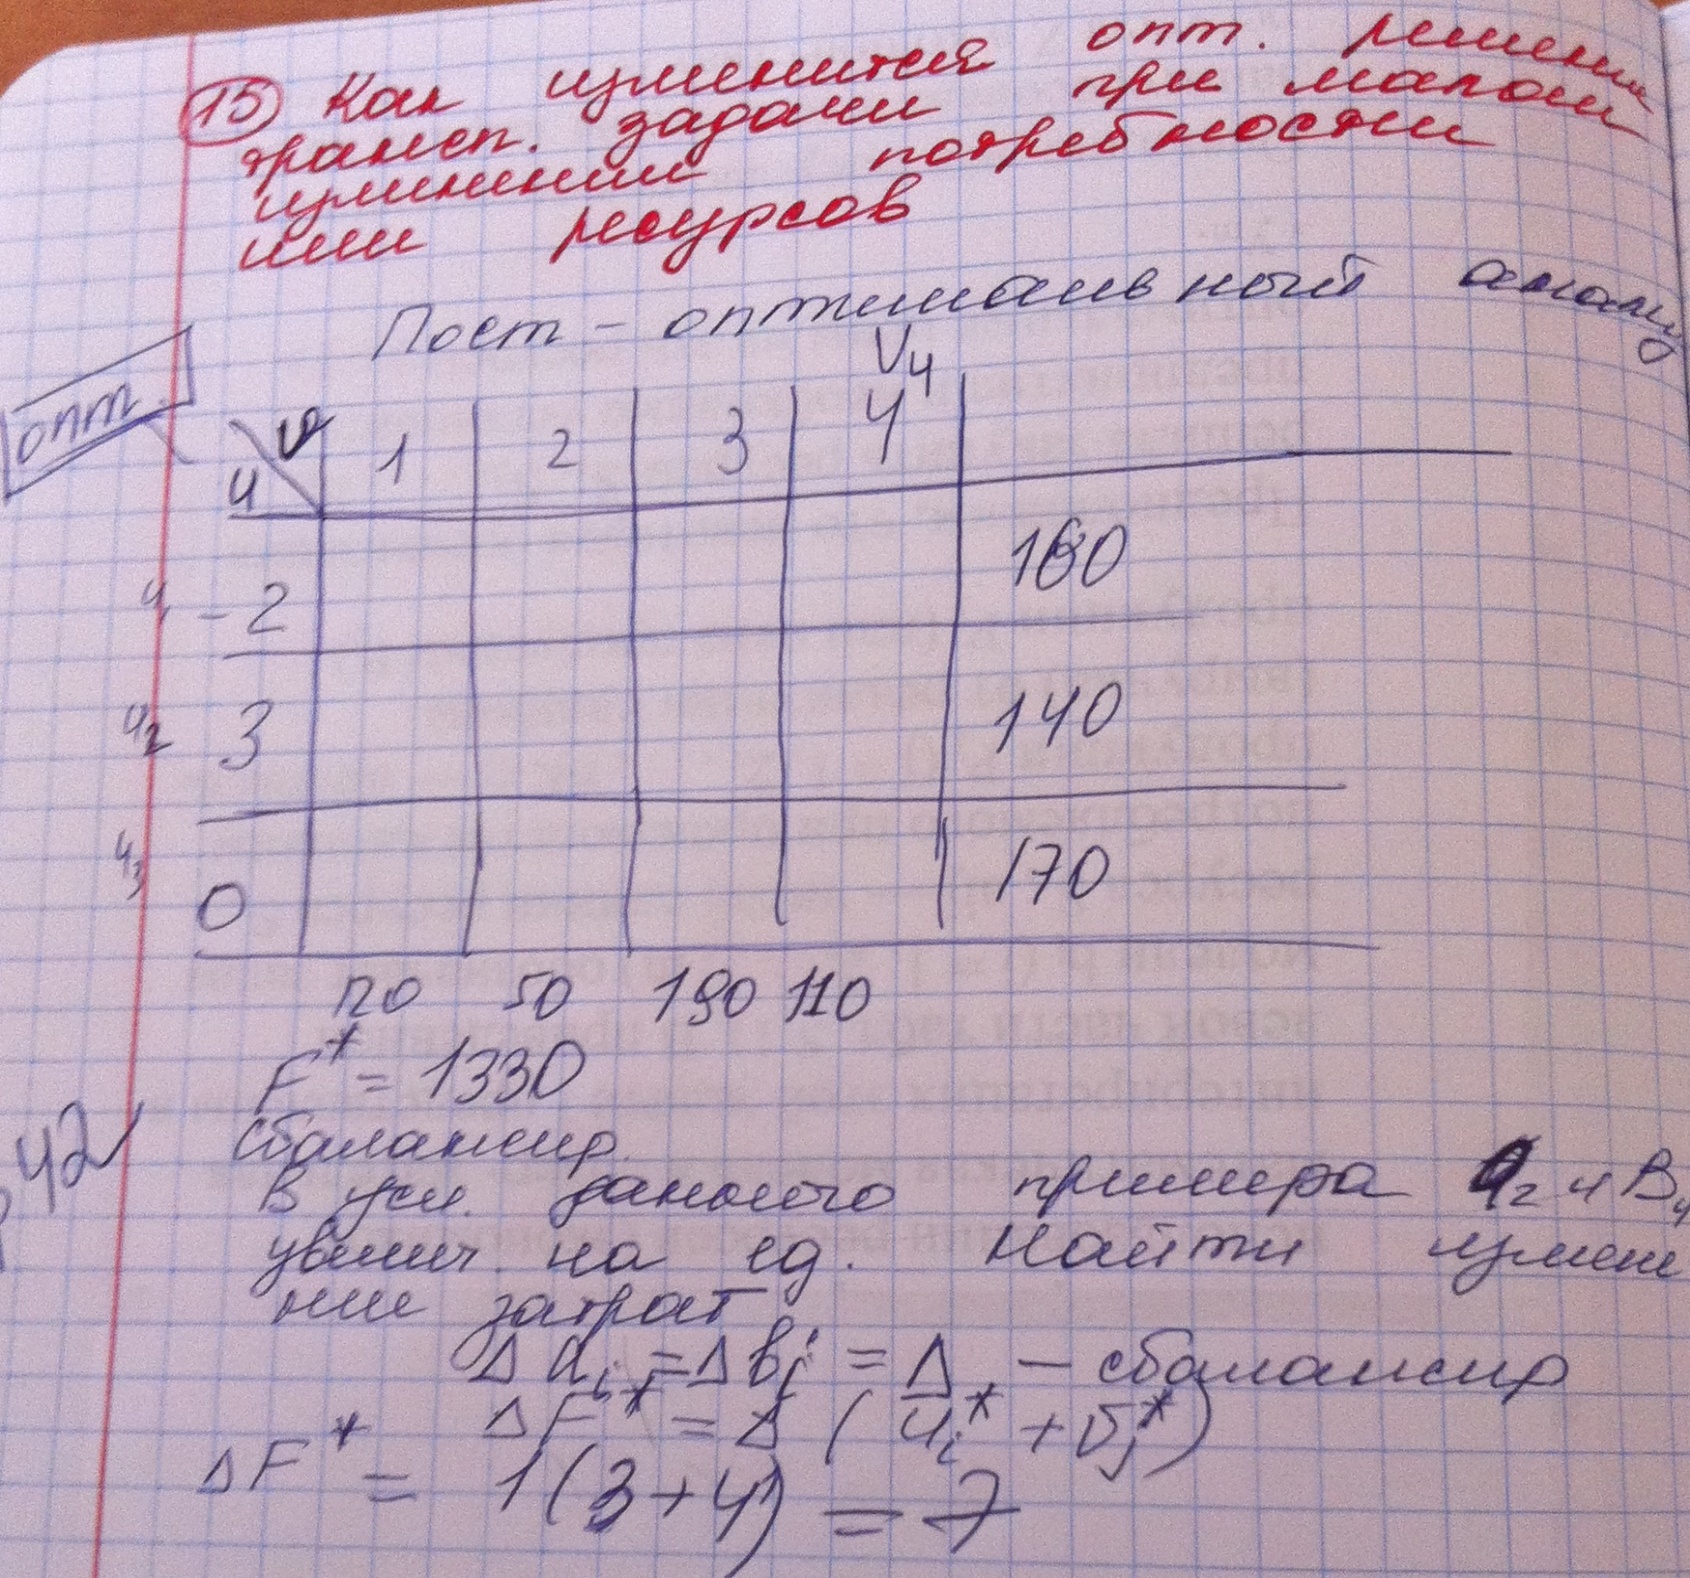 15 Как изменится опт. решение
трансп. задачи при малом
изменении потребности
или ресурсов
Пост-оптимальный анализ
опт.
V4
u v 1 2 3 4
u1 -2 160
u2 3 140
u3 0 170
120 50 190 110
F* = 1330
сбалансир.
42
В усл. данного примера a2 и B4
увелич. на ед. Найти измене
ние затрат
Δ ai = Δ bj = Δ — сбалансир
Δ F* = Δ (ui* + vj*)
ΔF* = 1(3+4) = 7